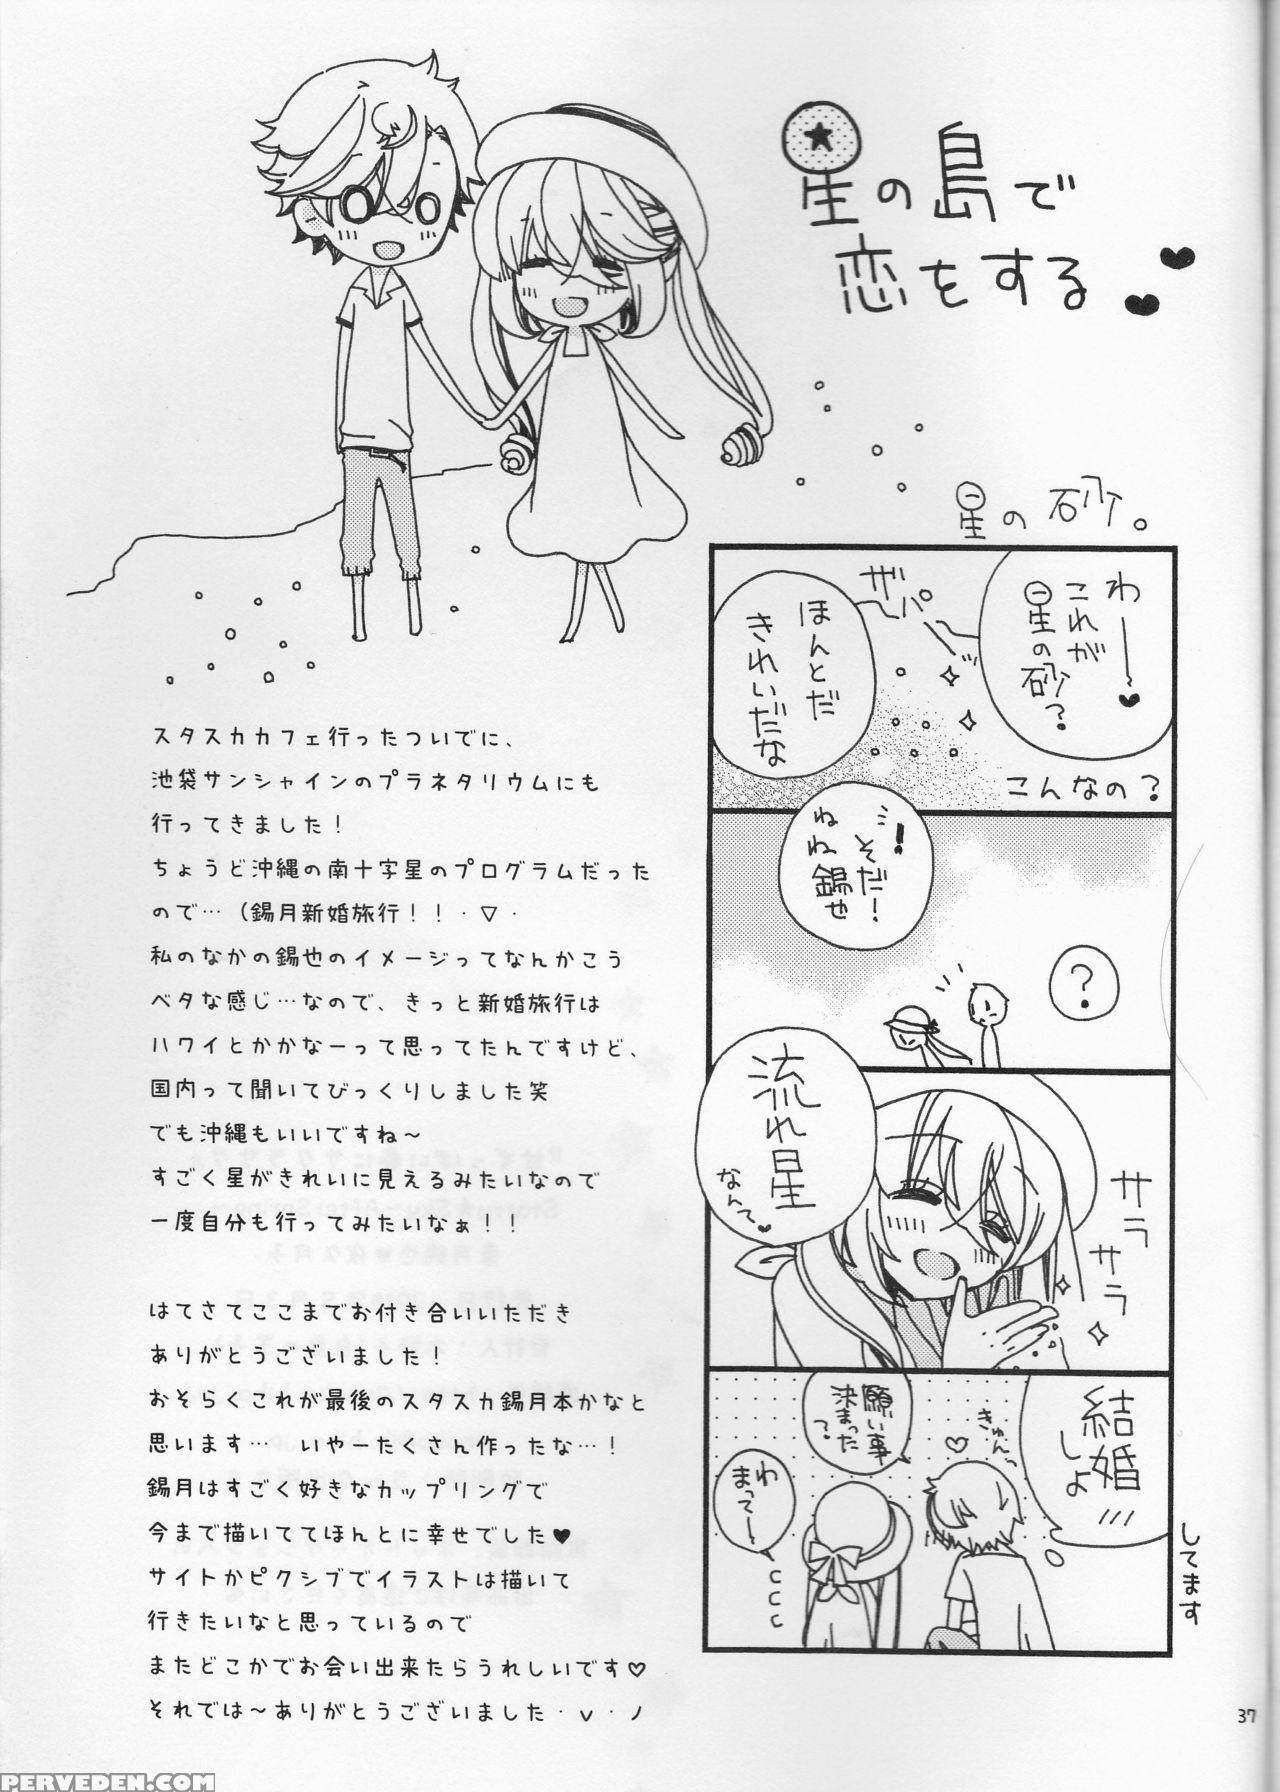 星の島で
恋をする
星の砂。
わーー♥
これが
星の砂?
ザパーッ
ほんとだ
きれいだな
こんなの?
!
そだ!
ねね錫也
?
流れ星
なんて♥
サラ
サラ
結婚
しよ
///
してます
きゅん
願い事
決まった
?
わ
まってー
スタスカカフェ行ったついでに、
池袋サンシャインのプラネタリウムにも
行ってきました!
ちょうど沖縄の南十字星のプログラムだった
ので…(錫月新婚旅行!!・▽・
私のなかの錫也のイメージってなんかこう
ベタな感じ…なので、きっと新婚旅行は
ハワイとかかなーって思ってたんですけど、
国内って聞いてびっくりしました笑
でも沖縄もいいですね～
すごく星がきれいに見えるみたいなので
一度自分も行ってみたいなぁ!!
はてさてここまでお付き合いいただき
ありがとうございました!
おそらくこれが最後のスタスカ錫月本かなと
思います…　いやーたくさん作ったな…!
錫月はすごく好きなカップリングで
今まで描いててほんとに幸せでした♥
サイトかピクシブでイラストは描いて
行きたいなと思っているので
またどこかでお会い出来たらうれしいです♡
それでは～ありがとうございました・v・ノ
37
PERVEDEN.COM